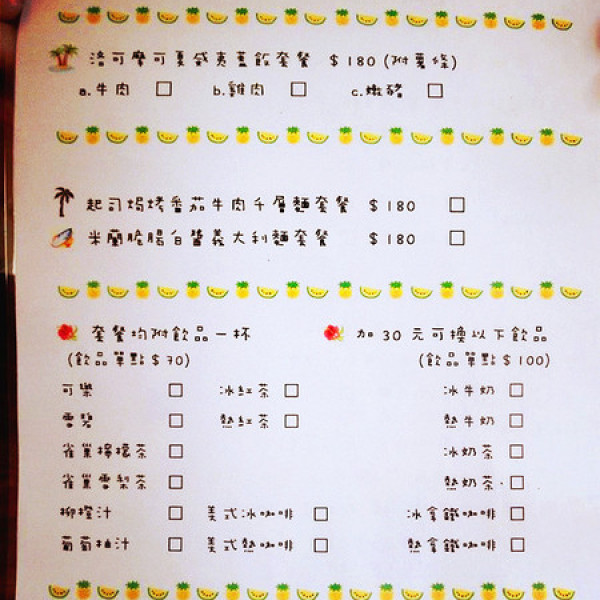 洛可摩可夏威夷蓋飯套餐 $180(附薯條)
a.牛肉 □ b.雞肉 □ c.嫩豬 □
起司焗烤番茄牛肉千層麵套餐 $180 □
米蘭脆腸白醬義大利麵套餐 $180 □
套餐均附飲品一杯 加30元可換以下飲品
(飲品單點$70) (飲品單點$100)
可樂 □ 冰紅茶 □ 冰牛奶 □
雪碧 □ 熱紅茶 □ 熱牛奶 □
雀巢檸檬茶 □ 冰奶茶 □
雀巢雪梨茶 □ 熱奶茶 □
柳橙汁 □ 美式冰咖啡 □ 冰拿鐵咖啡 □
葡萄柚汁 □ 美式熱咖啡 □ 熱拿鐵咖啡 □